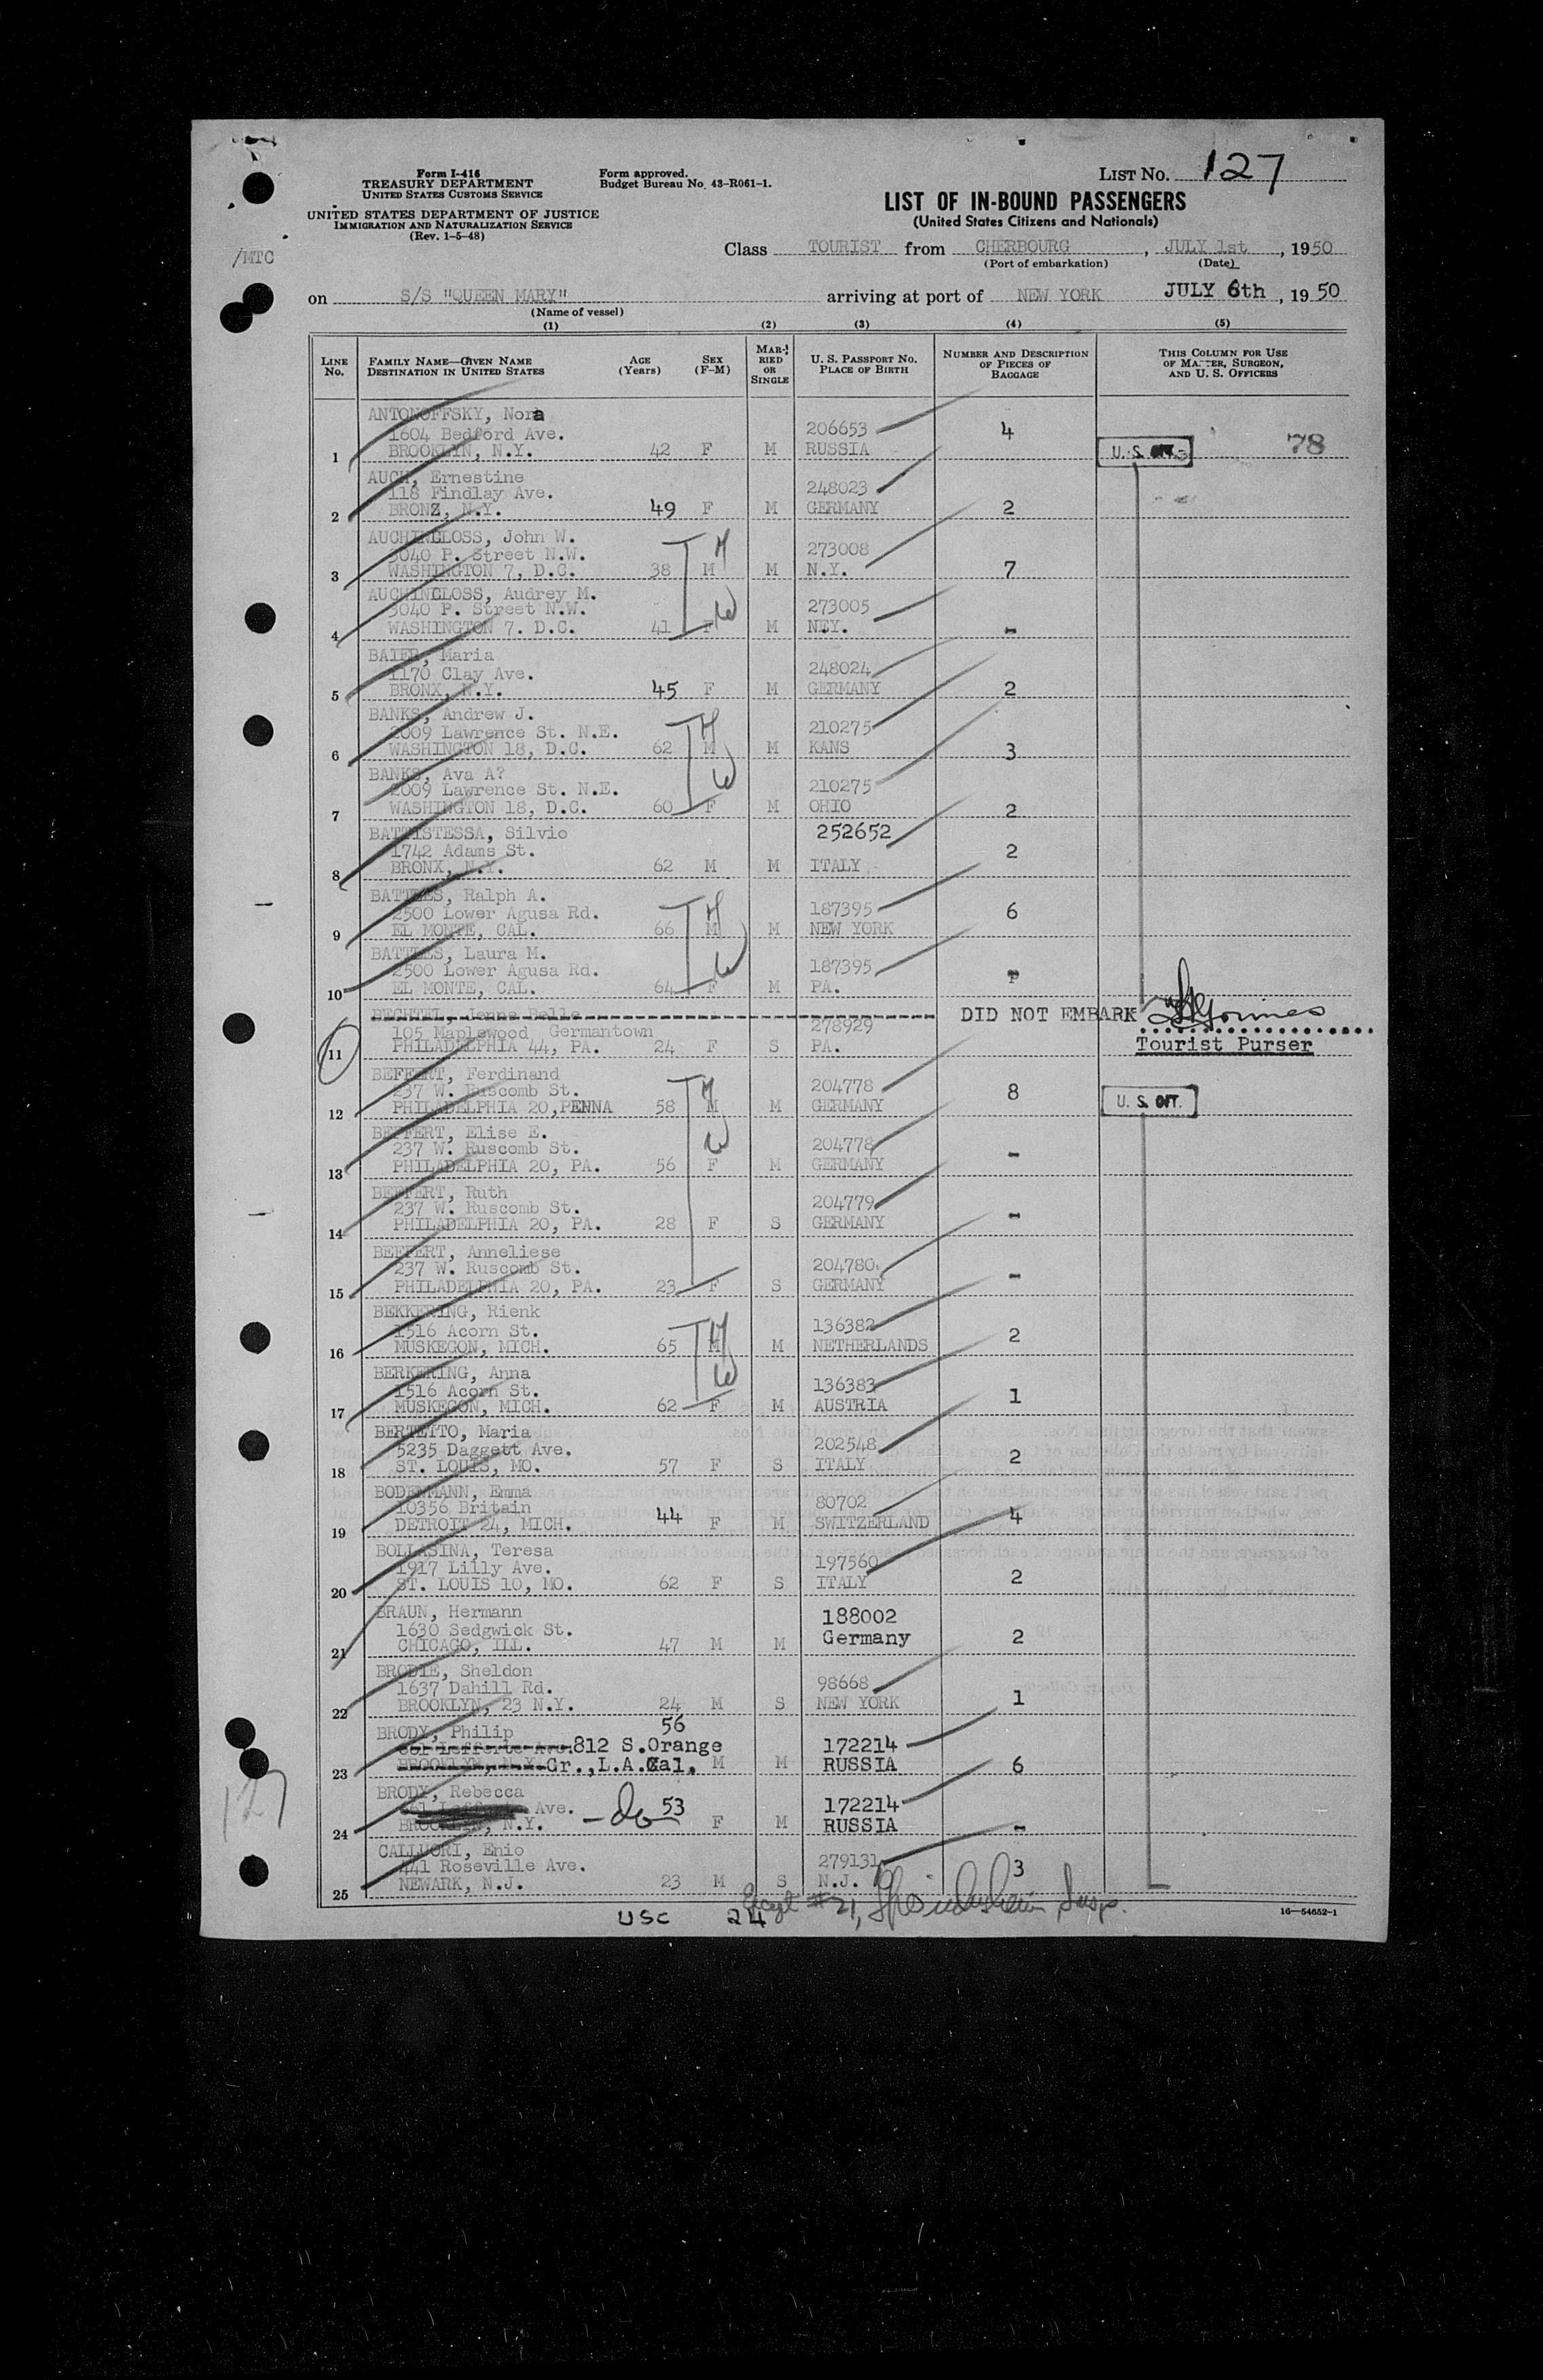 Form I-416
TREASURY DEPARTMENT
UNITED STATES CUSTOMS SERVICE
UNITED STATES DEPARTMENT OF JUSTICE
IMMIGRATION AND NATURALIZATION SERVICE
(Rev. 1-5-48)
Form approved.
Budget Bureau No. 43-R061-1.
LIST NO. 127
LIST OF IN-BOUND PASSENGERS
(United States Citizens and Nationals)
/MTC
Class TOURIST from CHERBOURG, JULY 1st, 1950
(Port of embarkation) (Date)
on S/S "QUEEN MARY" arriving at port of NEW YORK JULY 6th, 1950
(Name of vessel)
(1) (2) (3) (4) (5)
LINE No. FAMILY NAME—GIVEN NAME DESTINATION IN UNITED STATES AGE (Years) SEX (F-M) MARRIED OR SINGLE U. S. PASSPORT NO. PLACE OF BIRTH NUMBER AND DESCRIPTION OF PIECES OF BAGGAGE THIS COLUMN FOR USE OF MASTER, SURGEON, AND U. S. OFFICERS
ANTONOFFSKY, Nora
1604 Bedford Ave. 206653 4
1 BROOKLYN, N.Y. 42 F M RUSSIA U.S. CIT. 78
AUCH, Ernestine
118 Findlay Ave. 248023
2 BRONZ, N.Y. 49 F M GERMANY 2
AUCHINCLOSS, John W. H
3040 P. Street N.W. 273008
3 WASHINGTON 7, D.C. 38 M M N.Y. 7
AUCHINCLOSS, Audrey M.
3040 P. Street N.W. W 273005
4 WASHINGTON 7. D.C. 41 F M NEY. -
BAIER, Maria
1170 Clay Ave. 248024
5 BRONX, N.Y. 45 F M GERMANY 2
BANKS, Andrew J. H
2009 Lawrence St. N.E. 210275
6 WASHINGTON 18, D.C. 62 M M KANS 3
BANKS, Ava A? W
2009 Lawrence St. N.E. 210275
7 WASHINGTON 18, D.C. 60 F M OHIO 2
BATTISTESSA, Silvio 252652
1742 Adams St. 2
8 BRONX, N.Y. 62 M M ITALY
BATTLES, Ralph A. H
2500 Lower Agusa Rd. 187395 6
9 EL MONTE, CAL. 66 M M NEW YORK
BATTLES, Laura M. W
2500 Lower Agusa Rd. 187395
10 EL MONTE, CAL. 64 F M PA.
BECHTEL, Jenne Belle DID NOT EMBARK
105 Maplewood Germantown 278929
11 PHILADELPHIA 44, PA. 24 F S PA. Tourist Purser
BEFFERT, Ferdinand H
237 W. Ruscomb St. 204778 8
12 PHILADELPHIA 20,PENNA 58 M M GERMANY U.S. CIT.
BEFFERT, Elise E. W
237 W. Ruscomb St. 204778
13 PHILADELPHIA 20, PA. 56 F M GERMANY -
BEFFERT, Ruth
237 W. Ruscomb St. 204779
14 PHILADELPHIA 20, PA. 28 F S GERMANY -
BEFFERT, Anneliese
237 W. Ruscomb St. 204780
15 PHILADELPHIA 20, PA. 23 F S GERMANY -
BEKKERING, Rienk H
1516 Acorn St. 136382 2
16 MUSKEGON, MICH. 65 M M NETHERLANDS
BERKERING, Anna W
1516 Acorn St. 136383 1
17 MUSKEGON, MICH. 62 F M AUSTRIA
BERTETTO, Maria
5235 Daggett Ave. 202548 2
18 ST. LOUIS, MO. 57 F S ITALY
BODENMANN, Emma
10356 Britain 80702
19 DETROIT 24, MICH. 44 F M SWITZERLAND 4
BOLLASINA, Teresa
1917 Lilly Ave. 197560
20 ST. LOUIS 10, MO. 62 F S ITALY 2
BRAUN, Hermann 188002
1630 Sedgwick St. Germany 2
21 CHICAGO, ILL. 47 M M
BRODIE, Sheldon
1637 Dahill Rd. 98668
22 BROOKLYN, 23 N.Y. 24 M S NEW YORK 1
BRODY, Philip 56
812 S.Orange 172214
23 BROOKLYN, N.Y. Gr.,L.A.Cal, M M RUSSIA 6
BRODY, Rebecca
Ave. -do 53 172214
24 BROOKLYN, N.Y. F M RUSSIA -
CALLUORI, Enio
441 Roseville Ave. 279131 3
25 NEWARK, N.J. 23 M S N.J.
127
USC 24 Except #21, Insp.
16—54652-1